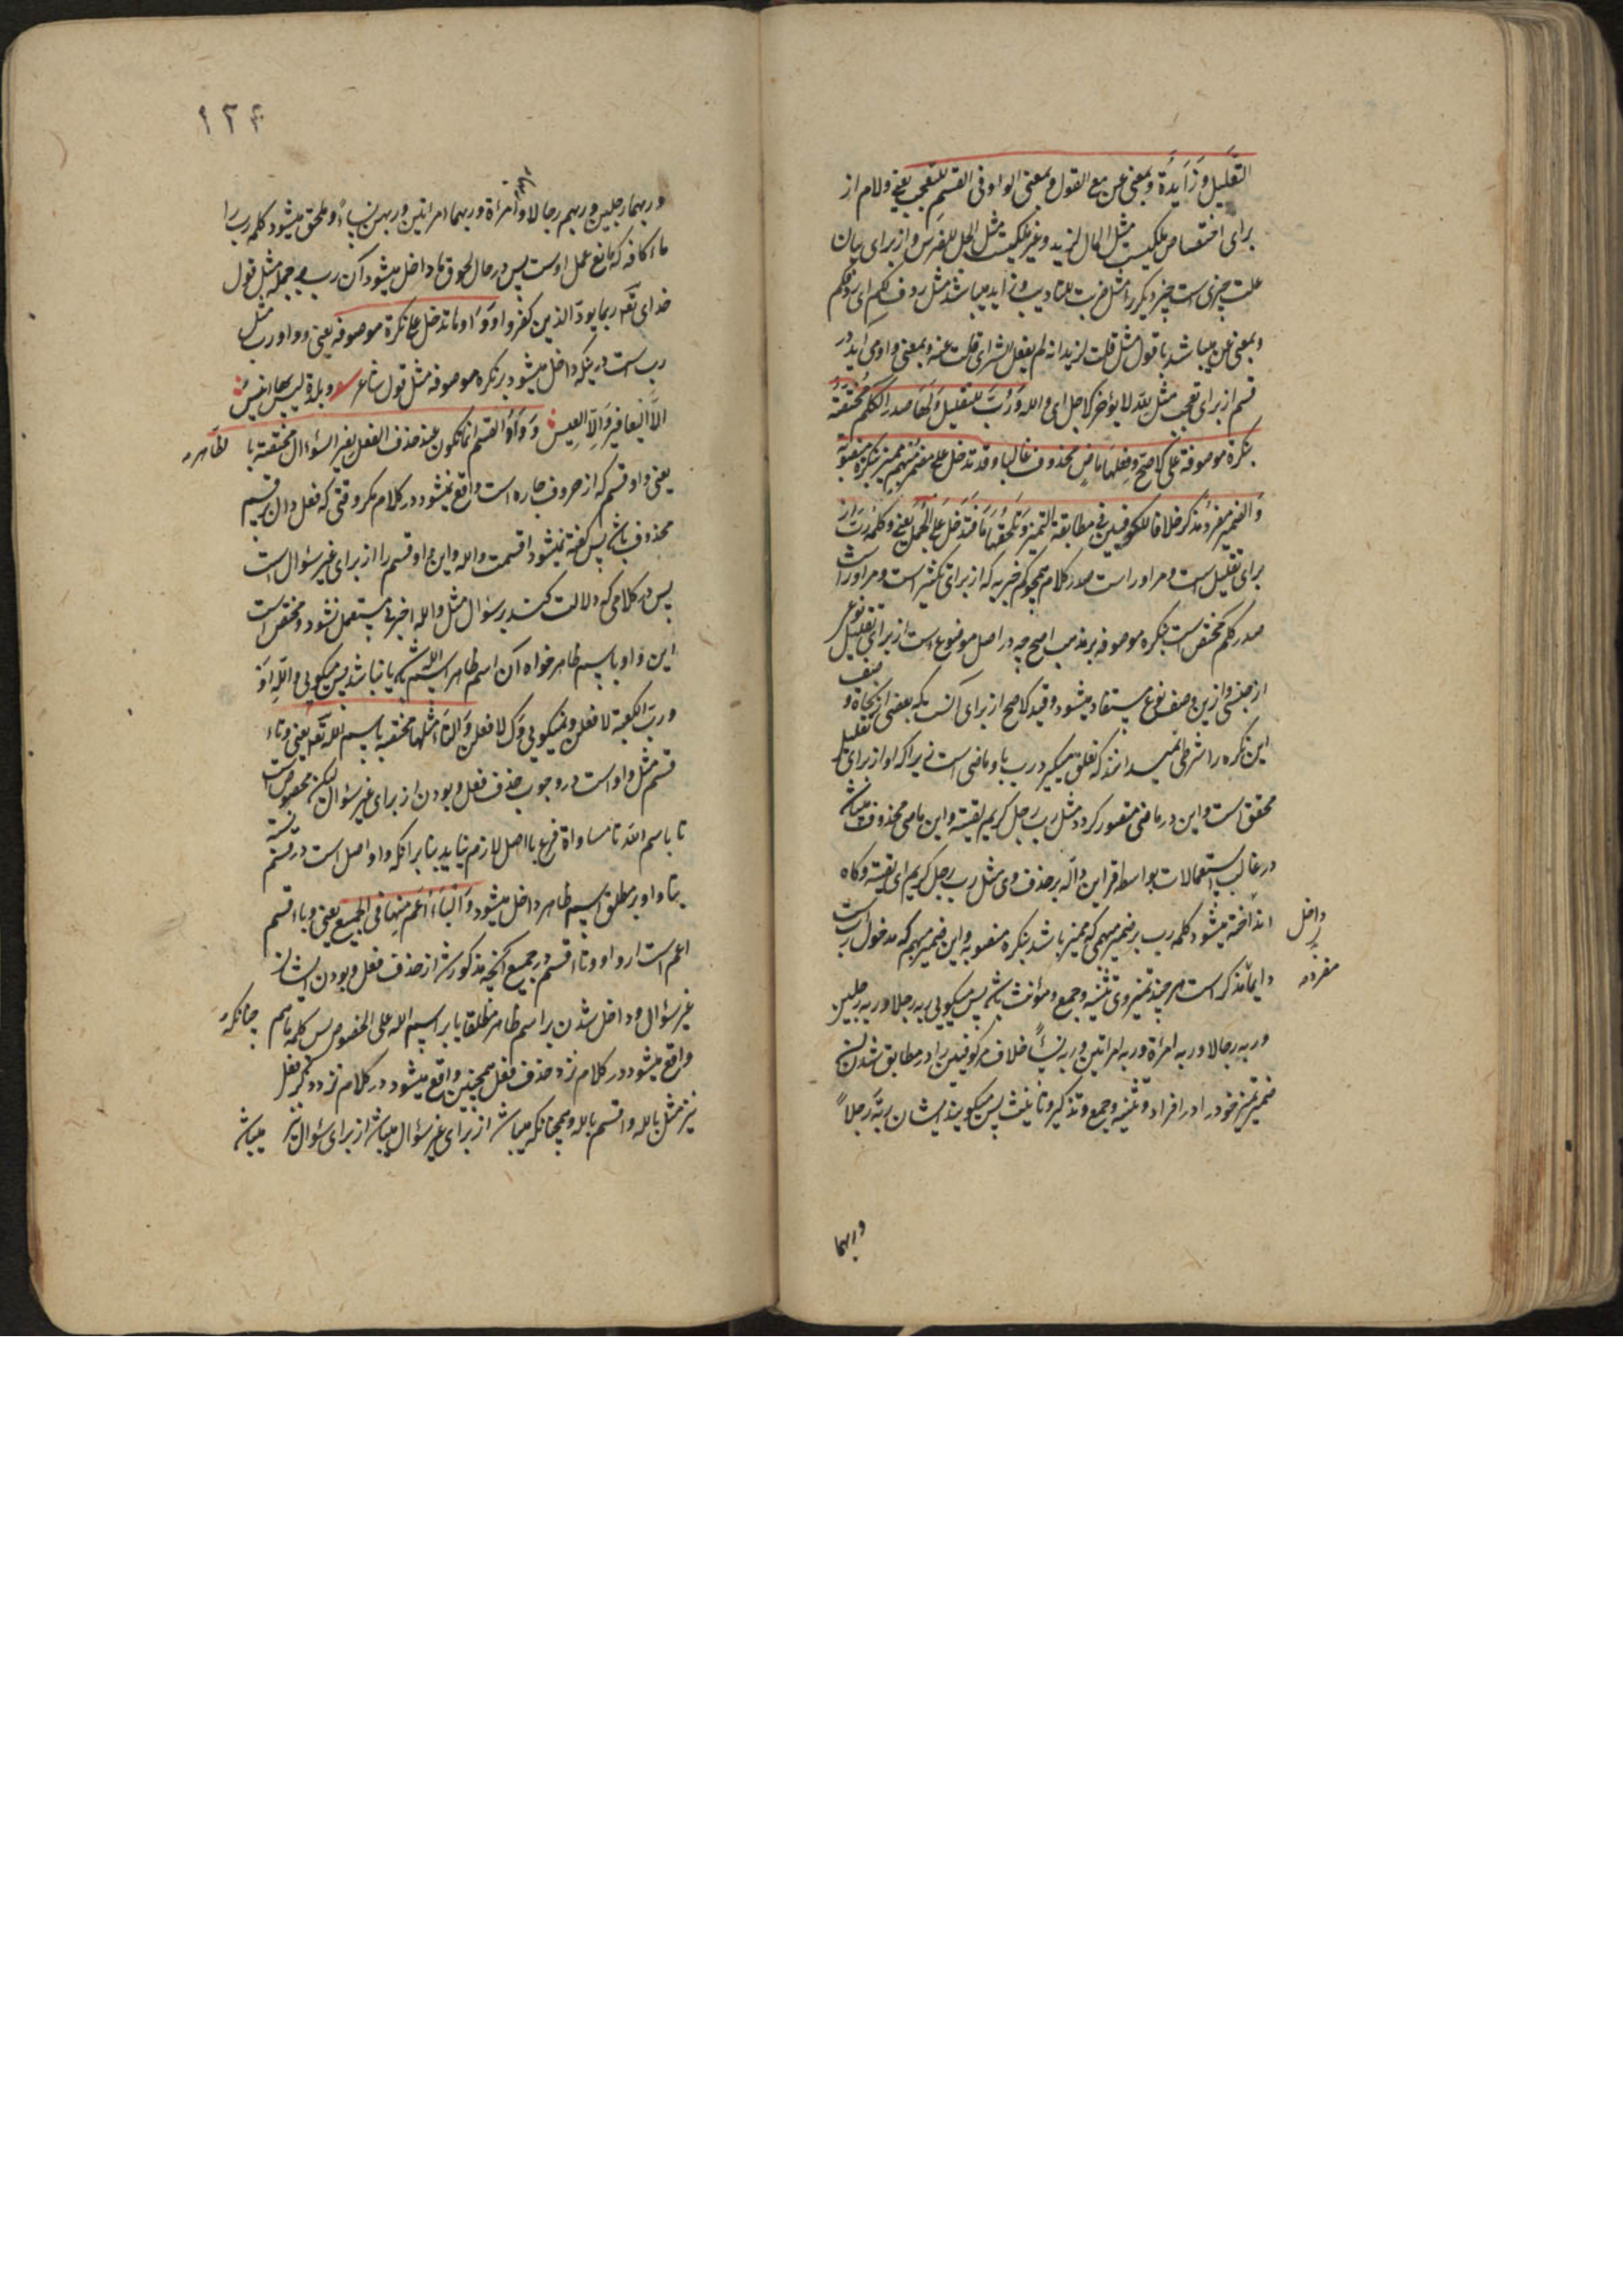 التعلیل وزایدة وبمعنی عن مع القول وبمعنی الواو فی القسم للتعجب یعنی ولام از
برای اختصاص بملکیت مثل المال لزید وغیر ملکیت مثل الجل للفرس واز برای بیان
علت چیزی است چیز دیکر را مثل ضربت للتادیب وزاید میباشد مثل ردف لکم ای ردفکم
وبمعنی عن میباشد با قول مثل قلت لزید انه لم یفعل الشر ای قلت عنه وبمعنی واو می آید در
قسم از برای تعجب مثل لله لا یؤخر الاجل ای والله ورب للتقلیل ولها صدر الکلام مختصة
بنکرة موصوفة علی الاصح وفعلها ماض محذوف غالبا وقد تدخل علی مضمر مبهم ممیز بنکرة منصوبة
والضمیر مفرد مذکر خلافا للکوفیین فی مطابقة التمییز وتلحقها ما فتدخل علی الجمل یعنی وکلمه رب از
برای تقلیل است ومر اوراست صدر کلام همچو کم خبریه که از برای تکثیر است ومر اوراست
صدر کلام مختص است بنکره موصوفه بر مذهب اصح چه در اصل موضوع است از برای تقلیل نوعی
از جنسی واز این وصف نوع مستفاد میشود وقید الاصح از برای آنست که بعضی از نحاة وصف
این نکره را شرط نمیدانند که تعلق میکیرد رب باو ماضی است زیرا که او از برای تقلیل
محقق است واین در ماضی متصور کردد مثل رب رجل کریم لقیته واین ماضی محذوف میباشد
در غالب استعمالات بواسطه قراین داله بر حذف وی مثل رب رجل کریم ای لقیته وکاه
داخل
انداخته میشود کلمه رب بر ضمیر مبهمی که ممیز باشد بنکره منصوبه واین ضمیر مبهم که مدخول رب است
مفرد
دایما مذکر است هر چند تمییز وی تثنیه وجمع ومؤنث باشد پس میکویی ربه رجلا وربه رجلین
وربه رجالا وربه امرأة وربه امراتین وربه نساءً خلاف مر کوفیین را در مطابق شدن این
ضمیر تمییز خود را در افراد وتثنیه وجمع وتذکیر وتانیث پس میکویند ایشان ربه رجلاً
وربهما
۱۲۴
وربهما رجلین وربهم رجالا وربها امرأة وربهما امراتین وربهن نساءً وملحق میشود کلمه رب را
ماء کافه که مانع عمل اوست پس در حال لحوق ما داخل میشود آن رب بر جمله مثل قول
خدای تعه ربما یود الذین کفروا وواوها تدخل علی نکرة موصوفة یعنی وواو رب مثل
رب است در اینکه داخل میشود بر نکره موصوفه مثل قول شاعر وبلدة لیس بها انیس
الا الیعافیر والا العیس وواو القسم انما تکون عند حذف الفعل لغیر السؤال مختصة بالظاهر
یعنی واو قسم که از حروف جاره است واقع نمیشود در کلام مکر وقتی که فعل دال بر قسم
محذوف باشد پس کفته نمیشود اقسمت والله واین واو قسم را از برای غیر سؤال است
پس در کلامی که دلالت کند بر سؤال مثل والله اخبرنی مستعمل نشود ومختص است
این واو باسم ظاهر خواه آن اسم ظاهر اسم الله باشد یا نباشد پس میکویی والله او
ورب الکعبة لافعلن ونمیکویی وک لافعلن والتاء مثلها مختصة باسم الله تعه یعنی وتاء
قسم مثل واو است در وجوب حذف فعل وبودن از برای غیر سؤال لیکن مخصوص است
تا باسم الله تا مساواة فرع با اصل لازم نیاید بنابر آنکه واو اصل است در قسم
وواو بر مطلق اسم ظاهر داخل میشود والباء اعم منها فی الجمیع یعنی وباء قسم
اعم است از واو وتاء قسم در جمیع آنچه مذکور شد از حذف فعل وبودن ایشان از
غیر سؤال وداخل شدن بر اسم ظاهر مطلقا یا بر اسم الله علی الخصوص پس کلمه باء قسم چنانکه
واقع میشود در کلام نزد حذف فعل همچنین واقع میشود در کلام نزد ذکر فعل
نیز مثل بالله واقسم بالله وهمچنانکه میباشد از برای غیر سؤال میباشد از برای سؤال نیز میباشد